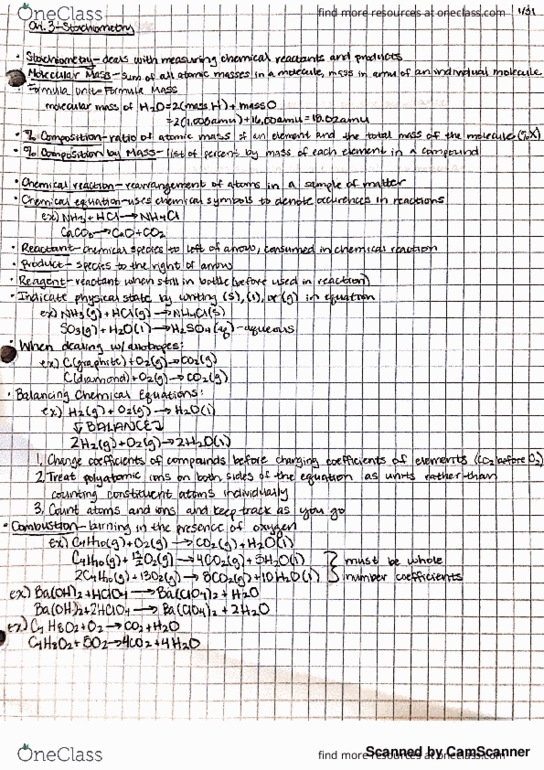 OneClass
find more resources at oneclass.com
1/31
Ch. 3 - Stoichiometry
• Stoichiometry - deals with measuring chemical reactants and products
• Molecular Mass - sum of all atomic masses in a molecule, mass in amu of an individual molecule
• Formula Unit - Formula Mass
molecular mass of H2O = 2(mass H) + mass O
= 2(1.008amu) + 16.00amu = 18.02amu
• % Composition - ratio of atomic mass of an element and the total mass of the molecule (%X)
• % Composition by Mass - list of percent by mass of each element in a compound
• Chemical reaction - rearrangement of atoms in a sample of matter
• Chemical equation - uses chemical symbols to denote occurences in reactions
ex) NH3 + HCl → NH4Cl
CaCO3 → CaO + CO2
• Reactant - chemical species to left of arrow, consumed in chemical reaction
• Product - species to the right of arrow
• Reagent - reactant when still in bottle (before used in reaction)
• Indicate physical state by writing (s), (l), or (g) in equation
ex) NH3(g) + HCl(g) → NH4Cl(s)
SO3(g) + H2O(l) → H2SO4(aq) - aqueous
• When dealing w/ allotropes:
ex) C(graphite) + O2(g) → CO2(g)
C(diamond) + O2(g) → CO2(g)
• Balancing Chemical Equations:
ex) H2(g) + O2(g) → H2O(l)
↓ BALANCE ↓
2H2(g) + O2(g) → 2H2O(l)
1. Change coefficients of compounds before changing coefficients of elements (CO2 before O2)
2. Treat polyatomic ions on both sides of the equation as units rather than
counting constituent atoms individually
3. Count atoms and ions and keep track as you go
• Combustion - burning in the presence of oxygen
ex) C4H10(g) + O2(g) → CO2(g) + H2O(l)
C4H10(g) + 13/2 O2(g) → 4CO2(g) + 5H2O(l) } must be whole
2C4H10(g) + 13O2(g) → 8CO2(g) + 10H2O(l) } number coefficients
ex) Ba(OH)2 + HClO4 → Ba(ClO4)2 + H2O
Ba(OH)2 + 2HClO4 → Ba(ClO4)2 + 2H2O
ex) C4H8O2 + O2 → CO2 + H2O
C4H8O2 + 5O2 → 4CO2 + 4H2O
OneClass
find more resources at oneclass.com
Scanned by CamScanner